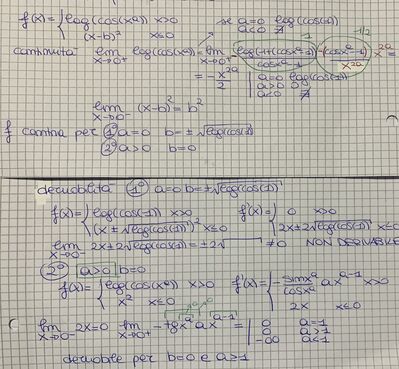 f(x) = { log(cos(x^a)) x>0   se a=0 log(cos(1))
(x-b)^2 x≤0   a<0 ∄
continuità lim x→0+ log(cos(x^a)) = lim x→0+ log(1+(cos x^a -1))/(cos x^a -1) · (cos x^a -1)/x^{2a} · x^{2a} =
1   -1/2
= -x^{2a}/2 | a=0 log(cos(1))
a>0 0
a<0 ∄
lim x→0- (x-b)^2 = b^2
f continua per 1° a=0 b=±√log(cos(1))
2° a>0 b=0
derivabilità 1° a=0 b=±√log(cos(1))
f(x) = { log(cos(1)) x>0   f'(x) = { 0 x>0
(x±√log(cos(1)))^2 x≤0   2x±2√log(cos(1)) x≤0
lim x→0- 2x±2√log(cos(1)) = ±2√ ≠0 NON DERIVABILE
2° a>0 b=0
f(x) = { log(cos(x^a)) x>0   f'(x) = { -sin x^a/cos x^a a x^{a-1} x>0
x^2 x≤0   2x x≤0
lim x→0- 2x=0 lim x→0+ -tg x^a a x^{a-1} = | 0 a=1
0 a>1
-∞ a<1
derivabile per b=0 e a>1